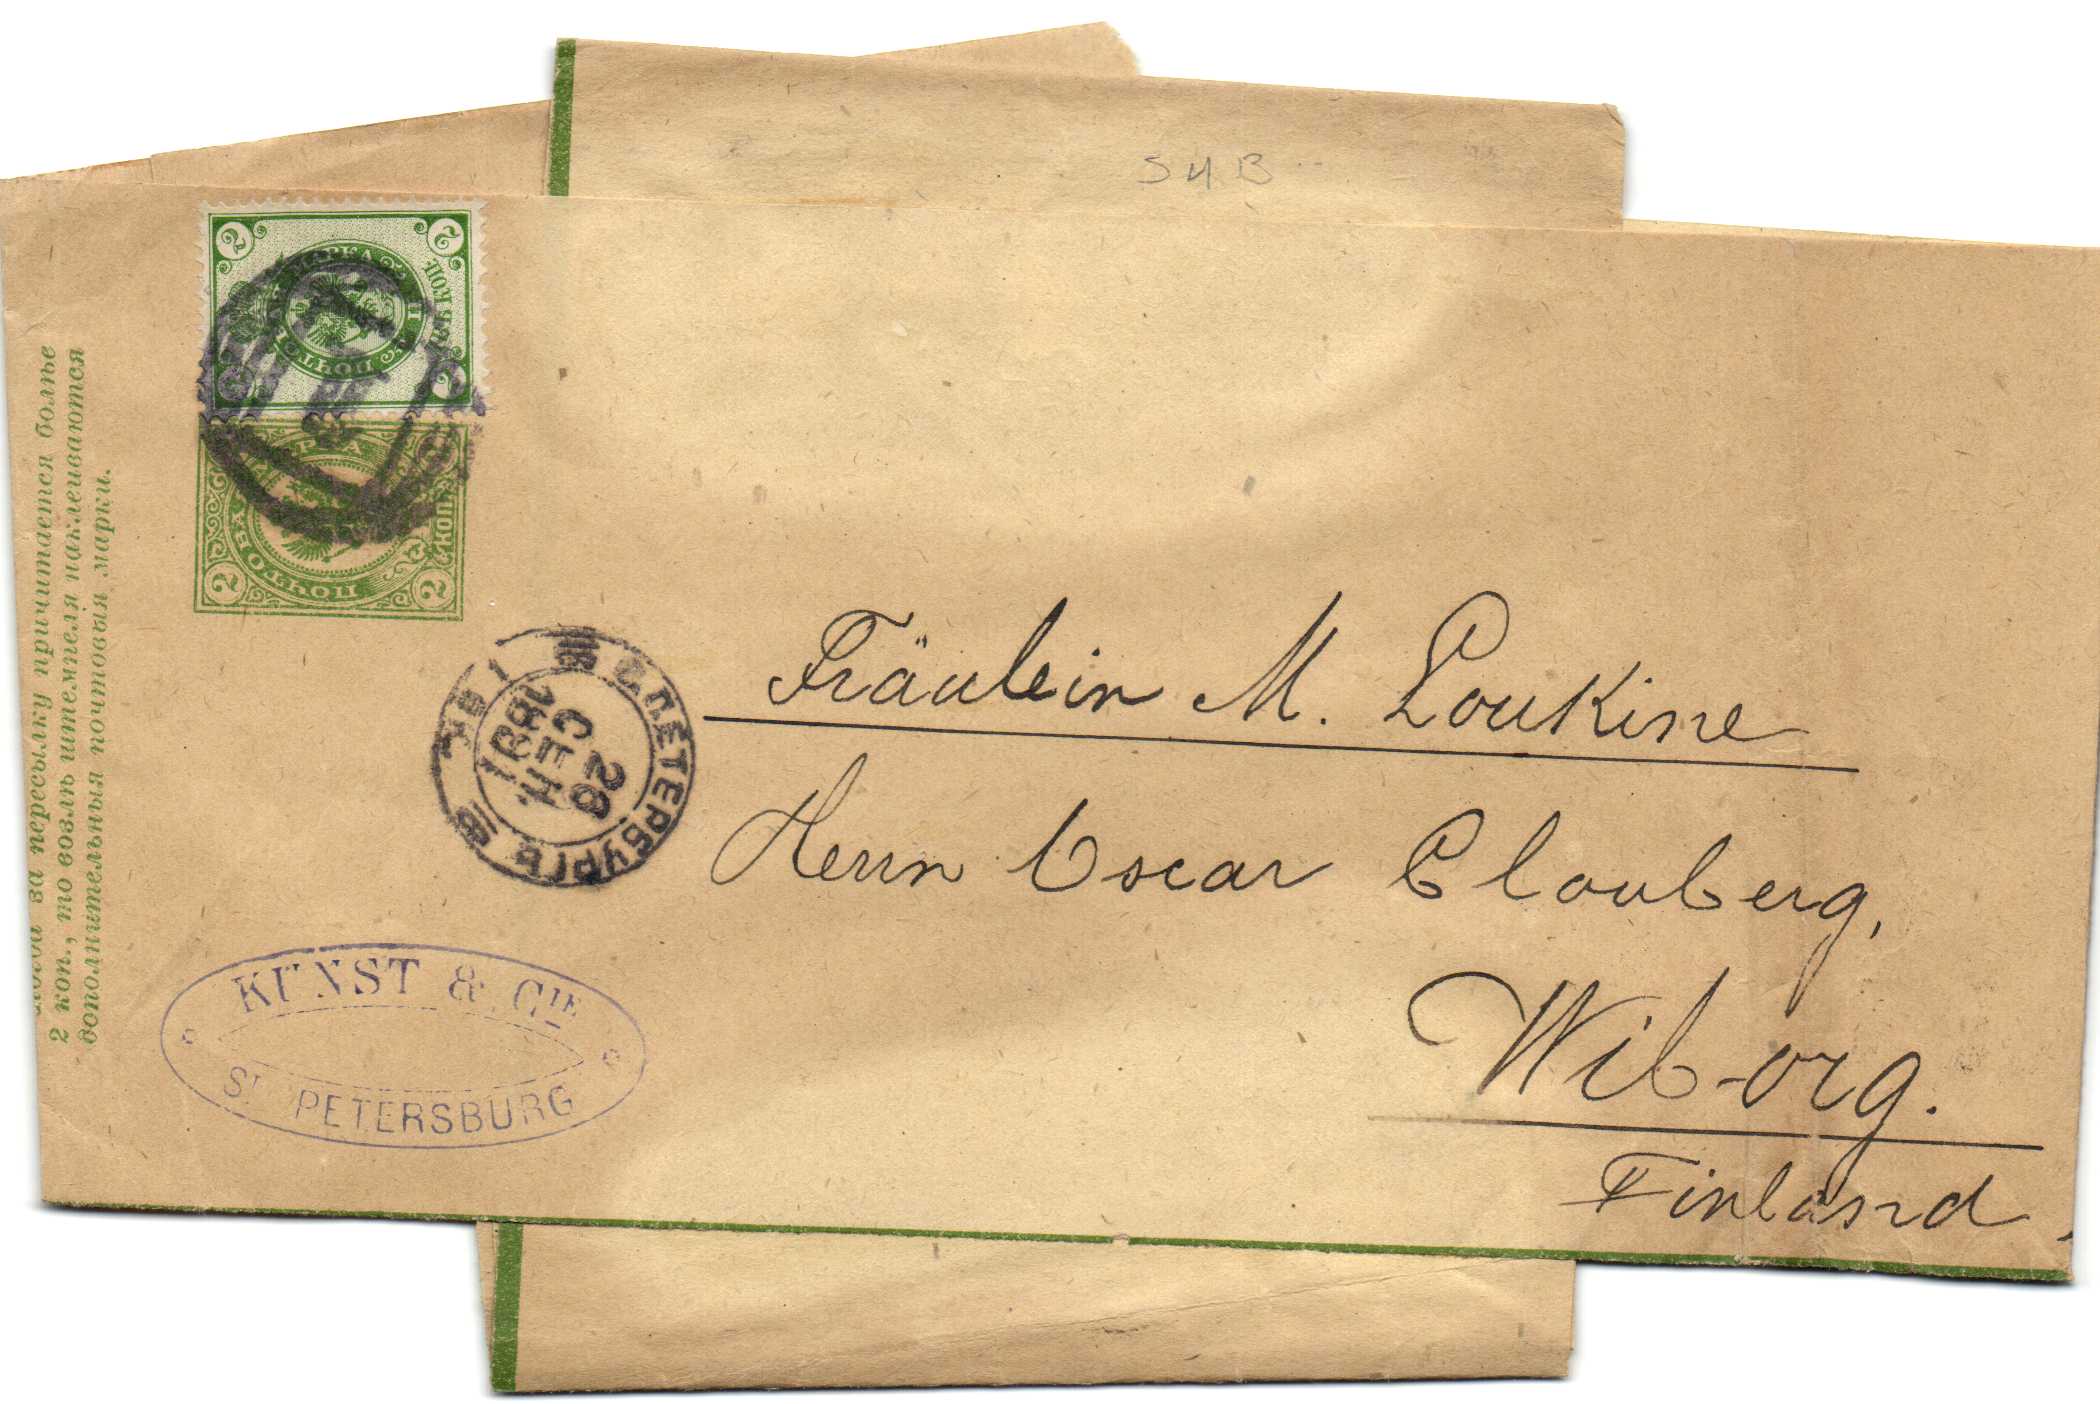 S H B
2
2
МАРКА
ПОЧТОВ
2
МАРКА
ПОЧТОВАЯ
2
2
КОП.
за пересылку причитается болѣе
2 коп., то возлѣ штемпеля наклеиваются
дополнительныя почтовыя марки.
С.ПЕТЕРБУРГЪ
26
СЕН.
1891
Fräulein M. Loukine
Herrn Oscar Clouberg,
Wiborg.
Finland.
KUNST & CIE
ST PETERSBURG